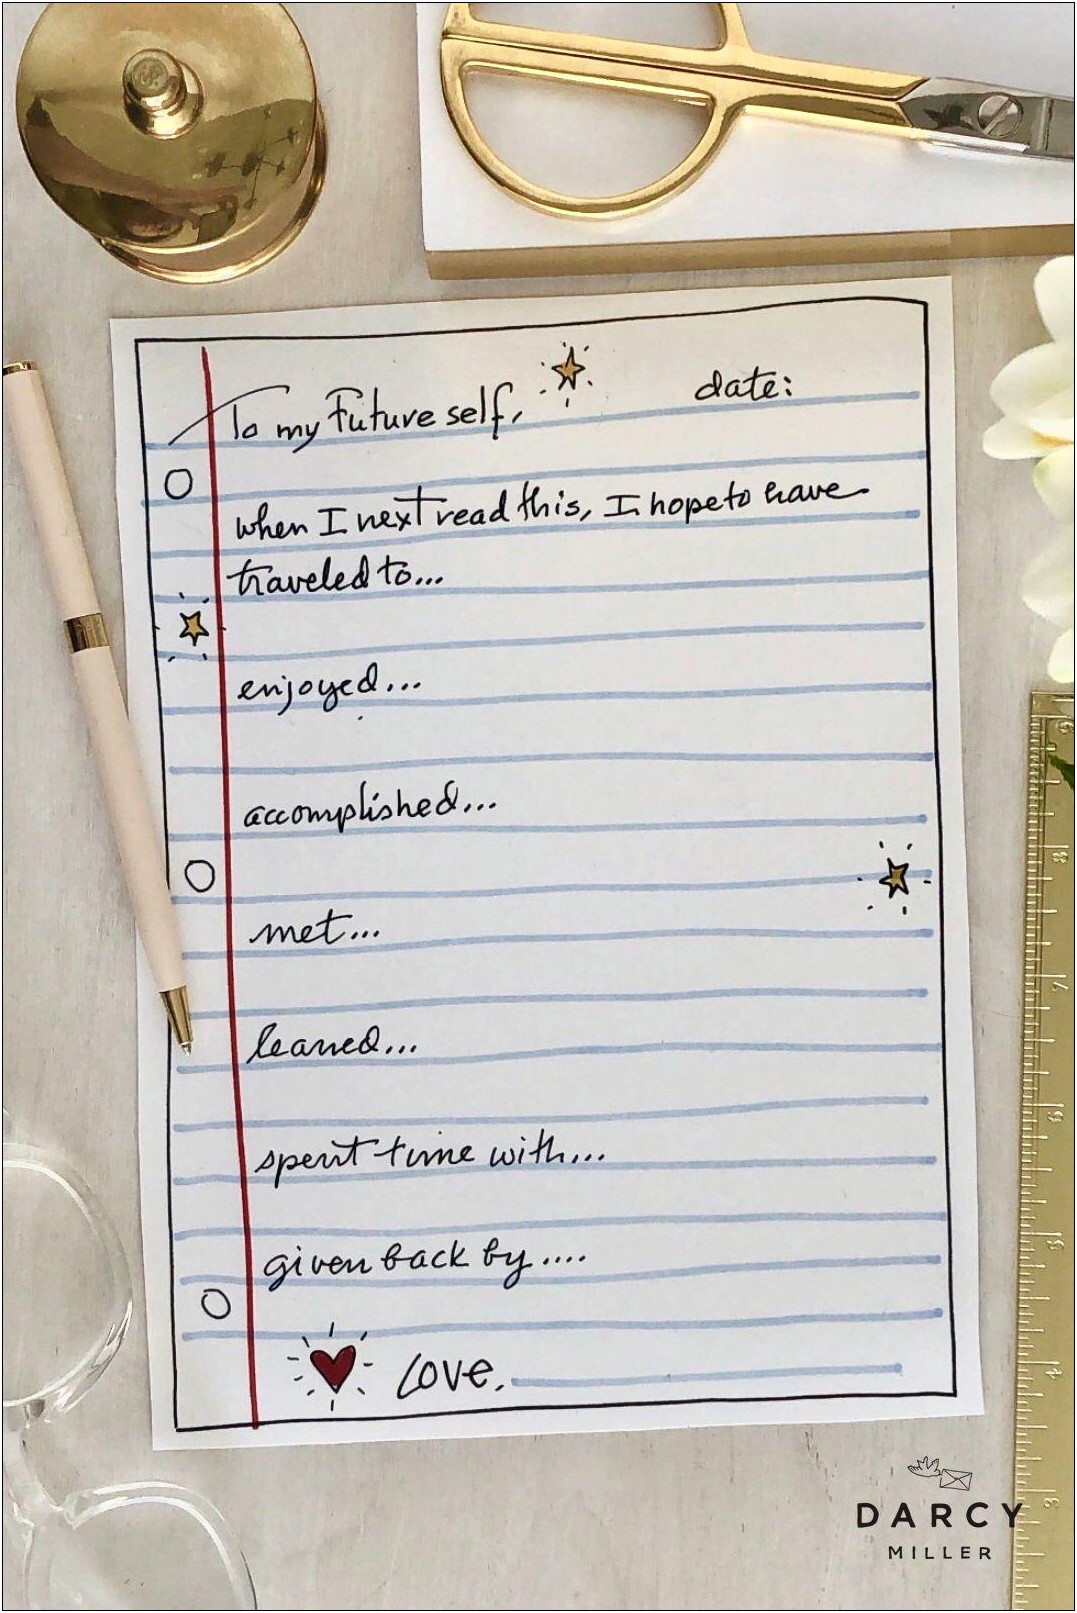 To my Future self,
date:
when I next read this, I hope to have
traveled to...
enjoyed...
accomplished...
met...
learned...
spent time with...
given back by....
Love,
DARCY
MILLER
9
8
7
6
5
4
3